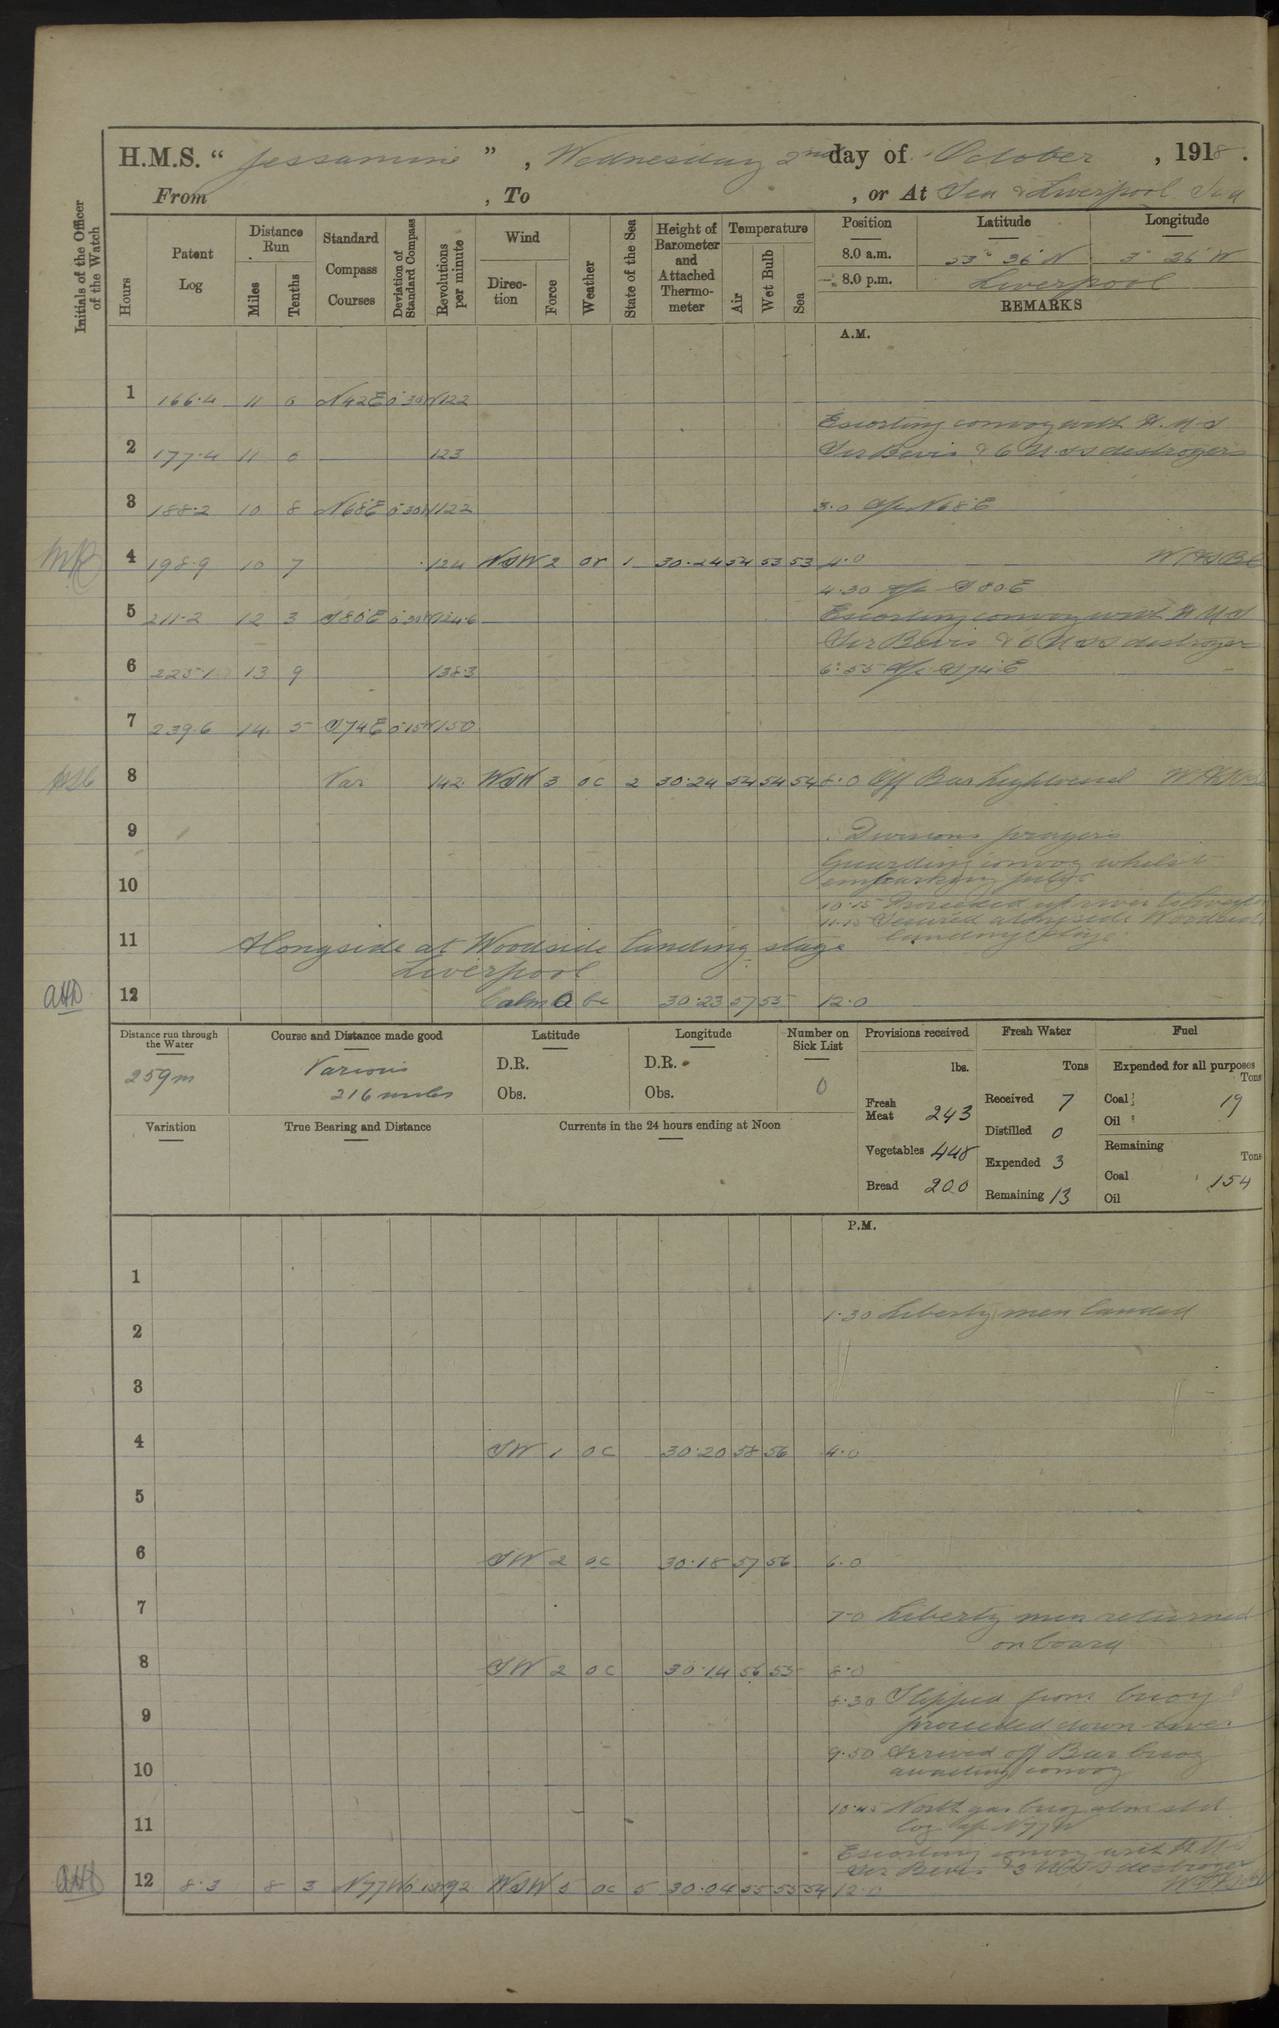 H.M.S. " Jessamine " , Wednesday 2nd day of October , 1918 .
From , To , or At Sea & Liverpool Sea
Initials of the Officer of the Watch
Hours
Patent Log
Distance Run
Miles
Tenths
Standard Compass Courses
Deviation of Standard Compass
Revolutions per minute
Wind
Direction
Force
Weather
State of the Sea
Height of Barometer and Attached Thermometer
Temperature
Air
Wet Bulb
Sea
Position Latitude Longitude
8.0 a.m. 53° 36' N 3° 26' W
8.0 p.m. Liverpool
REMARKS
A.M.
1 166.4 11 0 N42E 0°30 122
Escorting convoy with H.M.S
2 177.4 11 0 — 123 Sir Bevis & 6 U.S.S destroyers
3 188.2 10 8 N68E 0 30 122 3.0 A/c N68°E
4 198.9 10 7 124 WSW 2 or 1 30.24 54 53 53 4.0
4.30 A/c S80E
5 211.2 12 3 S80E 0 30 124.6 Escorting convoy with H M S
Sir Bevis & 6 U S S destroyer
6 225.1 13 9 138.3 6:55 A/c S74°E
7 239.6 14 5 S74E 0 15 150
8 Var 142 WSW 3 oc 2 30.24 54 54 54 8.0 Off Bar Lightvessel
9 Divisions prayers
Guarding convoy whilst
10 embarking pilots
10.15 Proceeded up river to Liverpool
11.15 Secured alongside Woodside
landing stage
11 Alongside at Woodside landing stage
Liverpool
12 Calm 0 bc 30.23 57 55 12.0
Distance run through the Water
259m
Course and Distance made good
Various
216 miles
Latitude
D.R.
Obs.
Longitude
D.R.
Obs.
Number on Sick List
0
Provisions received
lbs.
Fresh Meat 243
Vegetables 448
Bread 200
Fresh Water
Tons
Received 7
Distilled 0
Expended 3
Remaining 13
Fuel
Expended for all purposes
Tons
Coal 19
Oil
Remaining
Tons
Coal 154
Oil
Variation
True Bearing and Distance
Currents in the 24 hours ending at Noon
P.M.
1
1.30 Liberty men landed
2
3
4 SW 1 oc 30.20 58 56 4.0
5
6 SW 2 oc 30.18 57 56 6.0
7 7.0 Liberty men returned
on board
8 SW 2 oc 30.14 56 55 8.0
8.30 Slipped from buoy
9 proceeded down river
9.50 Arrived off Bar buoy
10 awaiting convoy
10.45 North gas buoy abm std
11 log A/c N77W
Escorting convoy with H.M.S
Sir Bevis & 3 U.S.S destroyer
12 8.3 8 3 N77W 92 WSW 5 oc 5 30.04 55 55 54 12.0